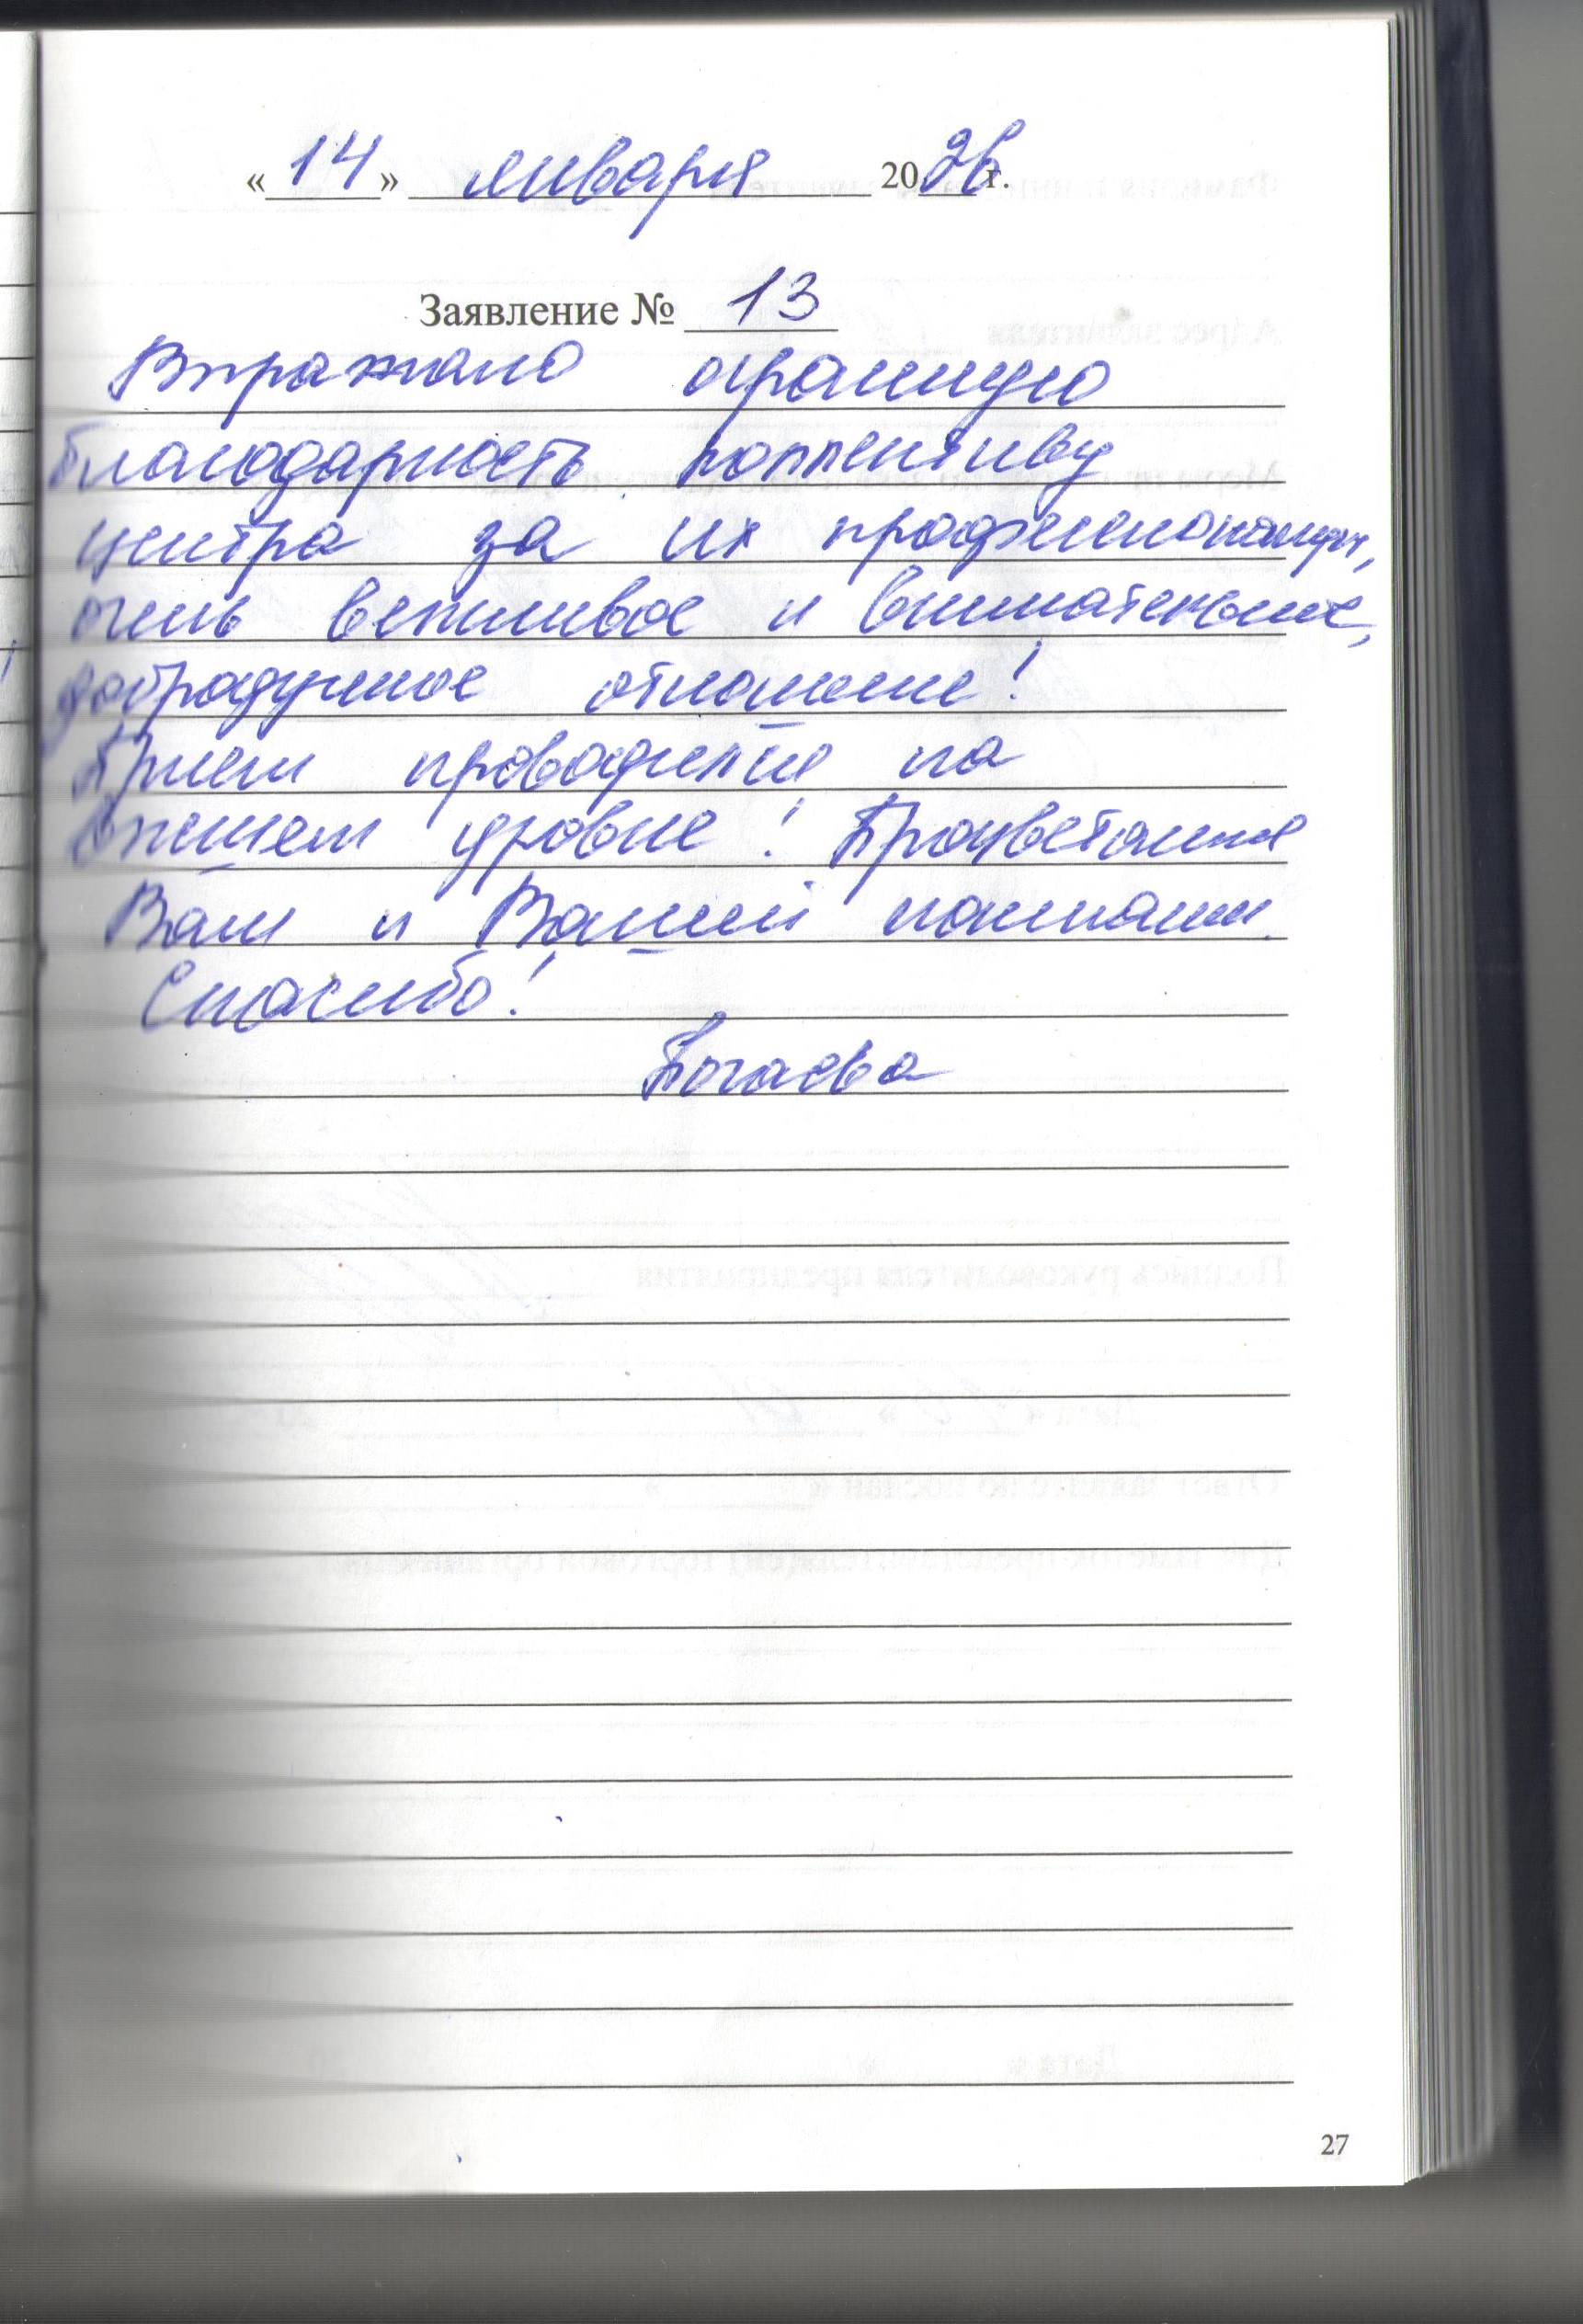 «14» января 2026 г.
Заявление № 13
Выражаю огромную
благодарность коллективу
центра за их профессионализм,
очень вежливое и внимательное,
добродушное отношение!
Прием проводится на
высшем уровне! Процветания
Вам и Вашей компании.
Спасибо!
27